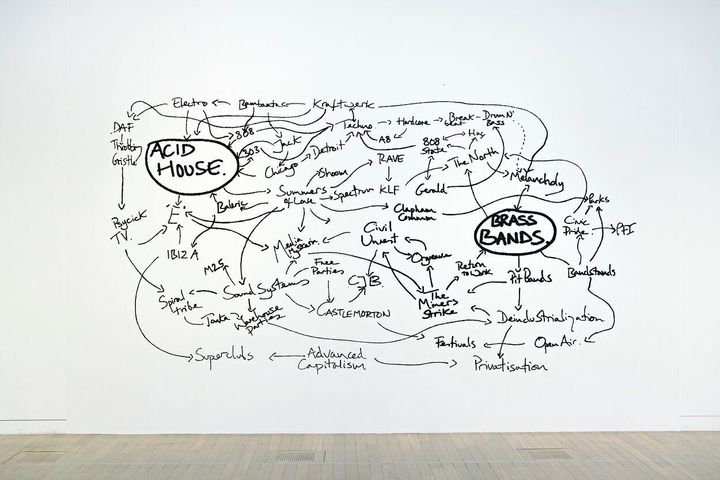 Electro
Bambaataa
Kraftwerk
DAF
808
Techno
Hardcore
Break-
beat
Drum N'
Bass
Throbbing
Gristle
ACID
HOUSE.
303
Jack
Detroit
A8
808
State
Hac
Chicago
Shoom
RAVE
The North
Melancholy
Summers
of Love
Spectrum
KLF
Gerald
Baleric
Parks
Psycick
TV.
"E"
Clapham
Common
BRASS
BANDS.
Civic
Pride
PFI
Civil
Unrest
Media
Hysteria
IBIZA
M25
Free
Parties
CJB
Orgreave
Return
to Work
Pit Bands
Bandstands
Spiral
tribe
Sound Systems
The
Miners
Strike
Tonka
Warehouse
Parties
CASTLEMORTON
Deindustrialization
Festivals
Open Air.
Superclubs
Advanced
Capitalism
Privatisation